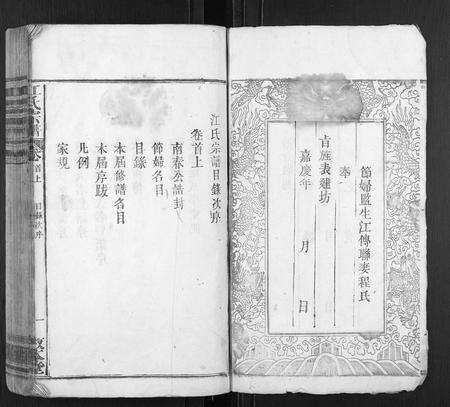 節婦監生江傳聯妻程氏
奉
旨旌表建坊
嘉慶 年 月 日
江氏宗譜目錄次序
卷首上
南春公誥封
節婦名目
目錄
本屆修譜名目
本屆序跋
凡例
家規
江氏宗譜
卷首上
目錄次序
一